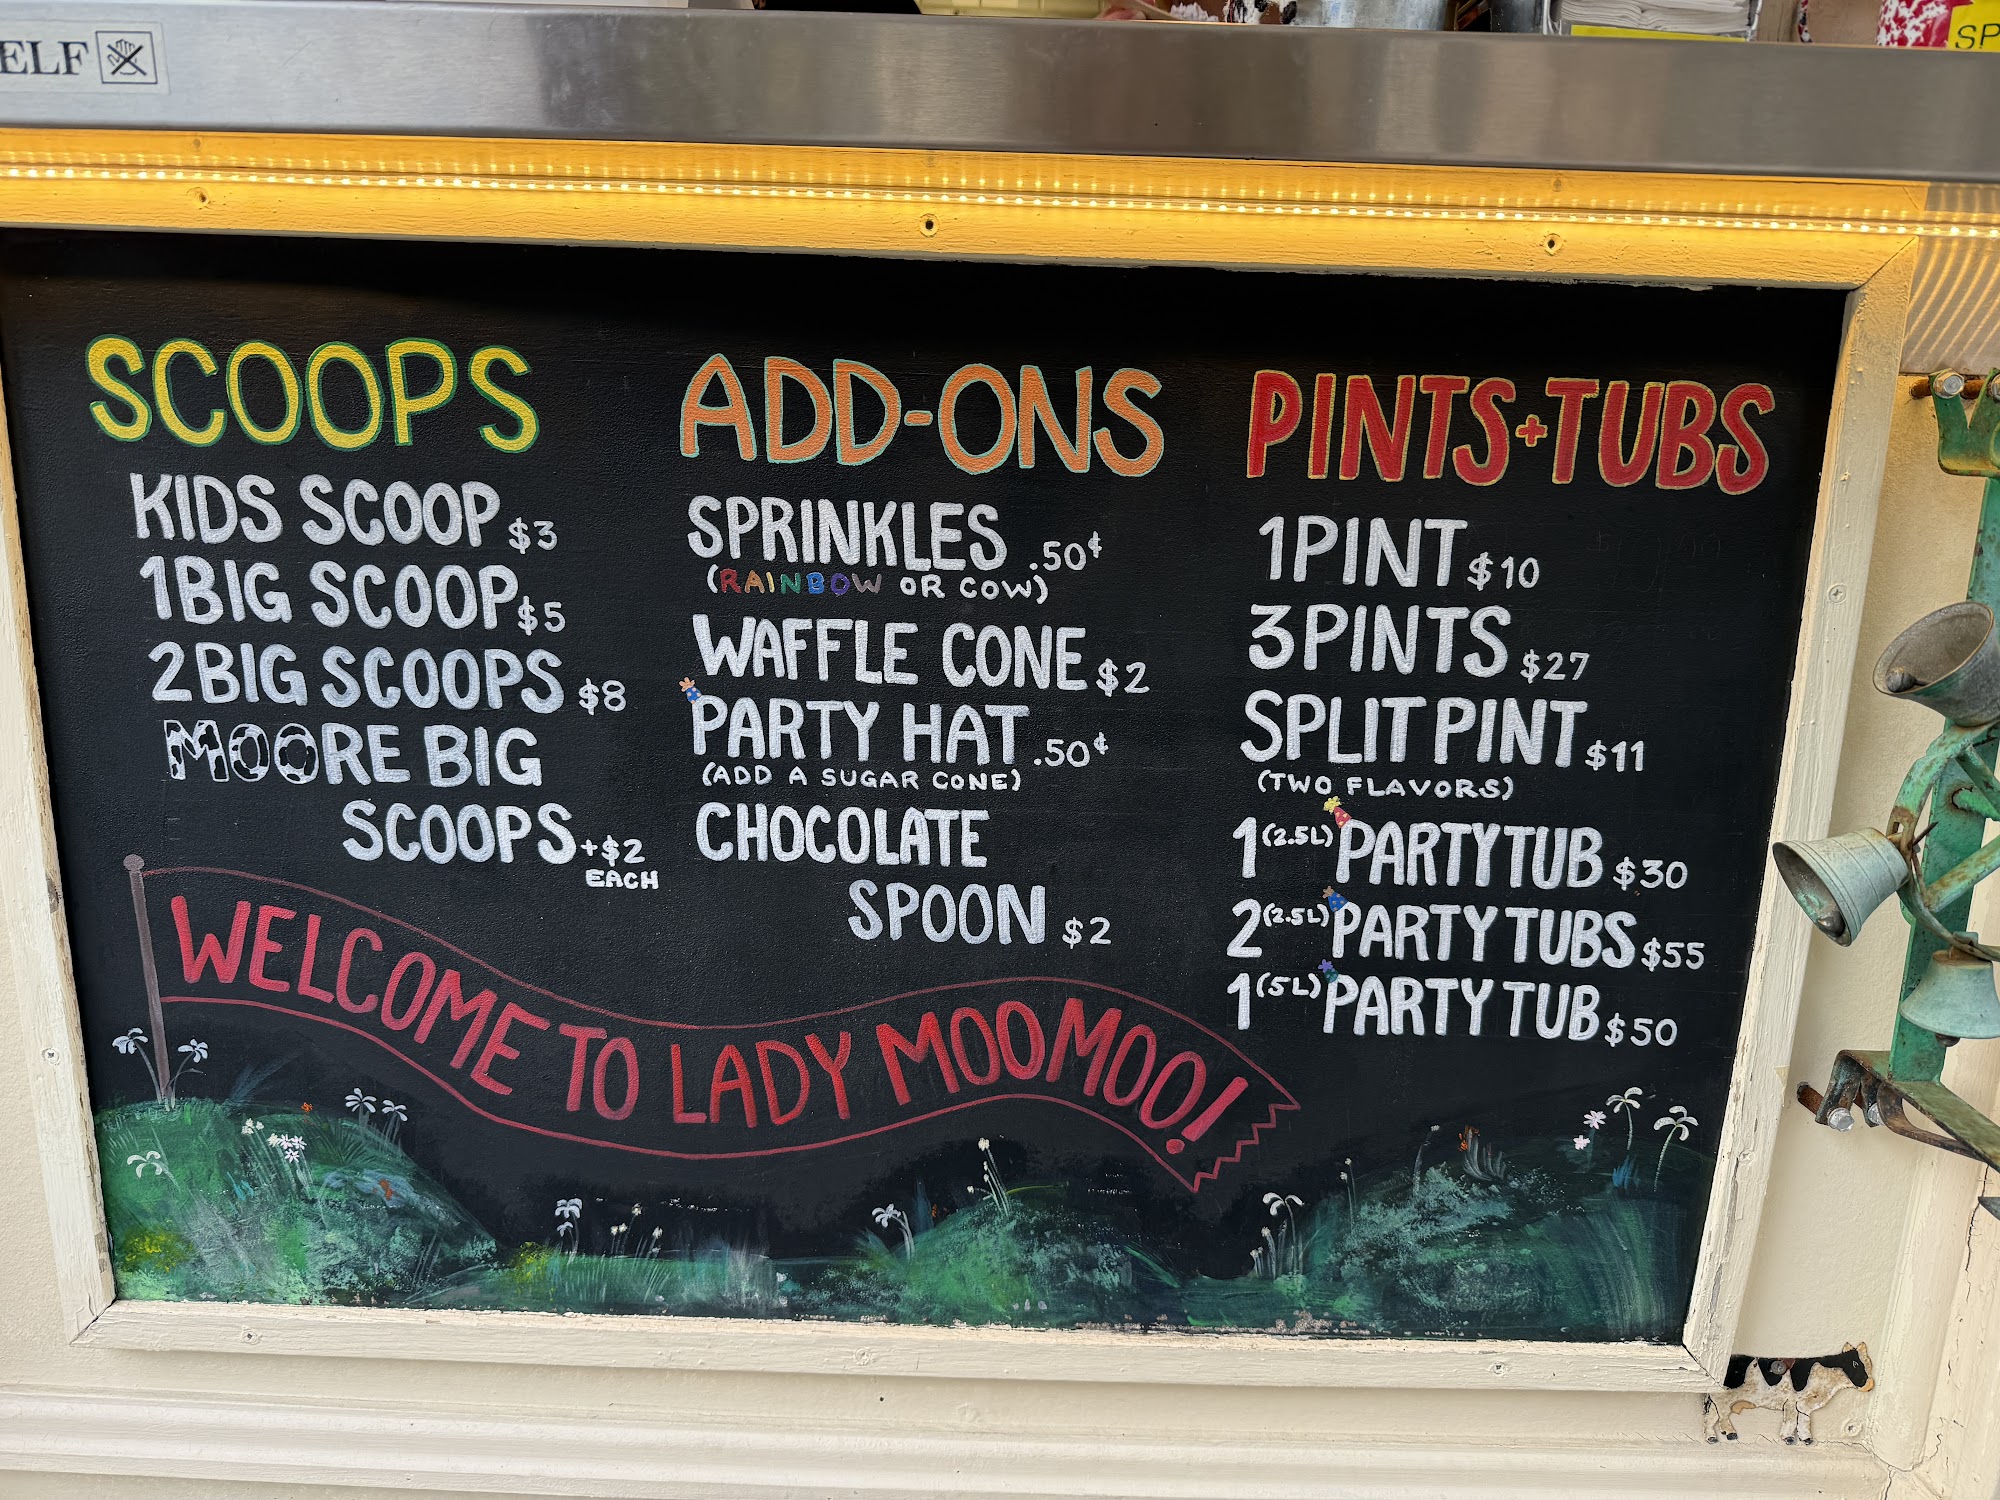 ELF
SP
SCOOPS
KIDS SCOOP $3
1 BIG SCOOP $5
2 BIG SCOOPS $8
MOORE BIG
SCOOPS +$2
EACH
ADD-ONS
SPRINKLES .50¢
(RAINBOW OR COW)
WAFFLE CONE $2
PARTY HAT .50¢
(ADD A SUGAR CONE)
CHOCOLATE
SPOON $2
PINTS+TUBS
1 PINT $10
3 PINTS $27
SPLIT PINT $11
(TWO FLAVORS)
1 (2.5L) PARTY TUB $30
2 (2.5L) PARTY TUBS $55
1 (5L) PARTY TUB $50
WELCOME TO LADY MOOMOO!